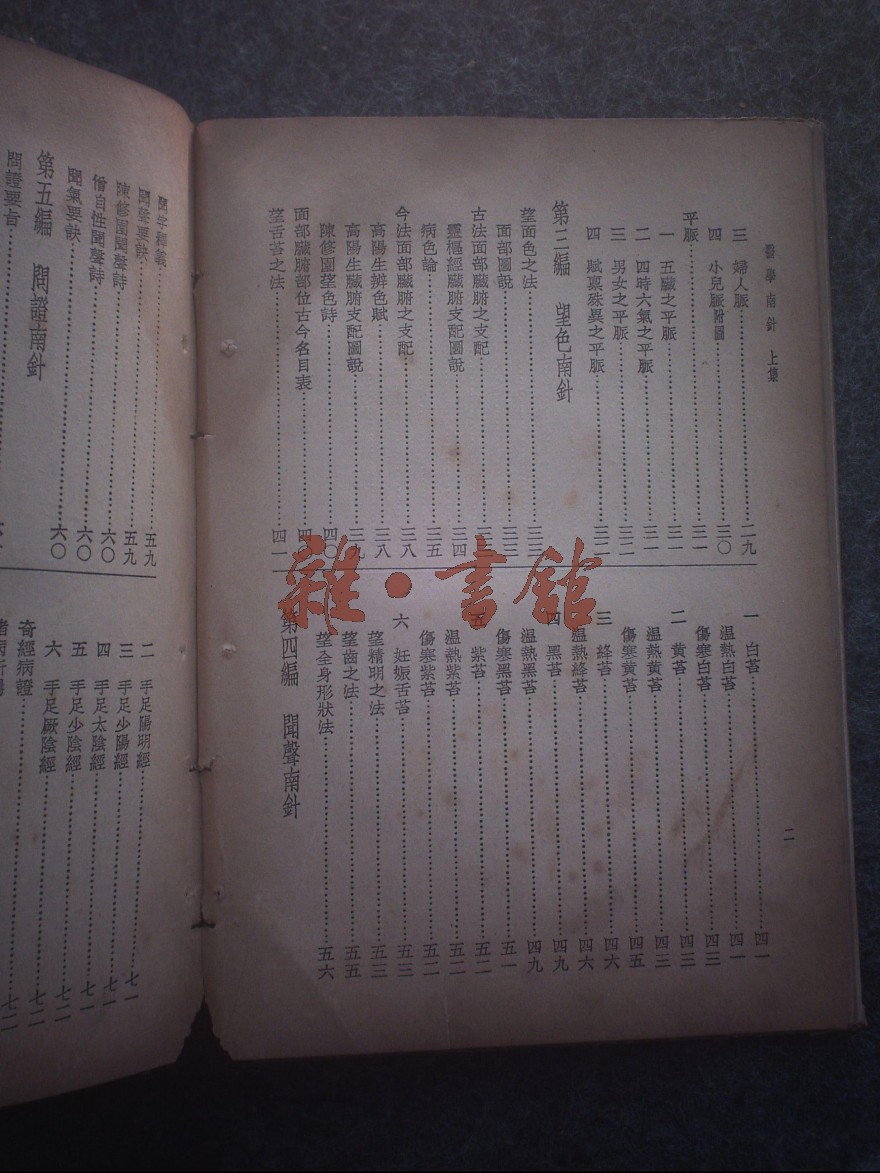 醫學南針 上集
三 婦人脈……二九
四 小兒脈附圖……三〇
平脈……三一
一 五臟之平脈……三一
二 四時六氣之平脈……三一
三 男女之平脈……三二
四 賦禀殊異之平脈……三二
第三編 望色南針
望面色之法……三三
面部圖說……三三
古法面部臟腑之支配……三三
靈樞經臟腑支配圖說……三四
病色論……三五
今法面部臟腑之支配……三八
高陽生辨色賦……三八
高陽生臟腑支配圖說……三九
陳修園望色詩……四〇
面部臟腑部位古今名目表……四〇
望舌苔之法……四一
一 白苔……四一
温熱白苔……四一
傷寒白苔……四三
二 黃苔……四三
温熱黃苔……四三
傷寒黃苔……四五
三 絳苔……四六
温熱絳苔……四六
四 黑苔……四九
温熱黑苔……四九
傷寒黑苔……五一
五 紫苔……五二
温熱紫苔……五二
傷寒紫苔……五二
六 妊娠舌苔……五三
望精明之法……五三
望齒之法……五五
望全身形狀法……五六
第四編 聞聲南針
二
聞字釋義……五九
聞聲要訣……五九
陳修園聞聲詩……六〇
僧自性聞聲詩……六〇
聞氣要訣……六〇
第五編 問證南針
問證要旨……
二 手足陽明經……七一
三 手足少陽經……七一
四 手足太陰經……七一
五 手足少陰經……七二
六 手足厥陰經……七二
奇經病證……七二
雜·書館